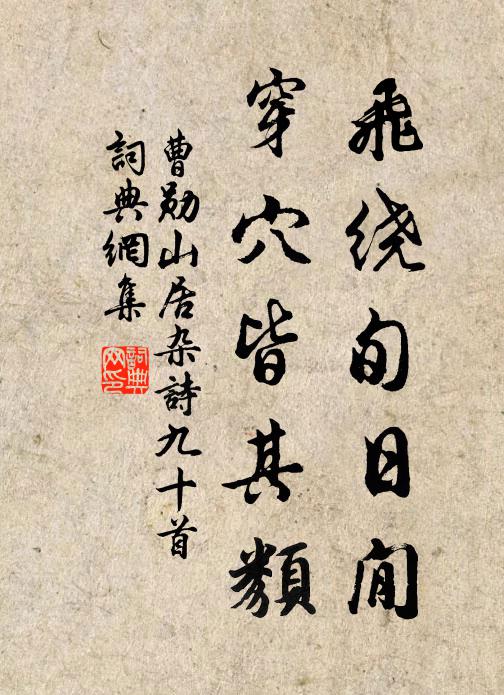 飛绕旬日間
穿穴皆其類
曹勛山居杂詩九十首
詞典網集
詞典
网印